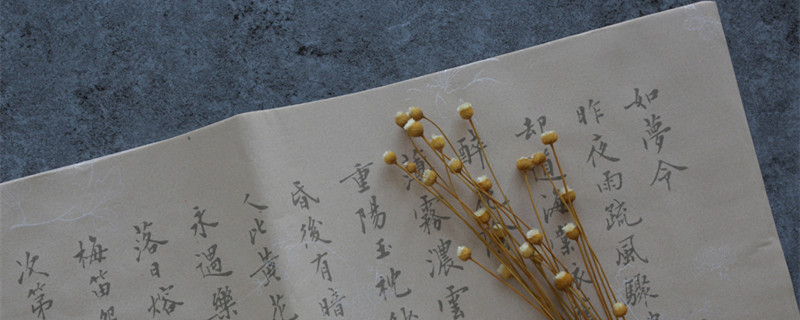 如夢令
昨夜雨疏風驟
却道海棠依
醉花
薄霧濃雲
重陽玉枕
昏後有暗
人比黃花
永遇樂
落日熔
梅笛怨
次第